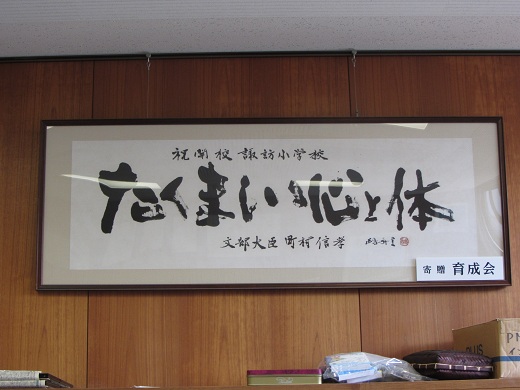 祝開校 諏訪小学校
たくましい心と体
文部大臣 町村信孝
寄贈 育成会
PLUS